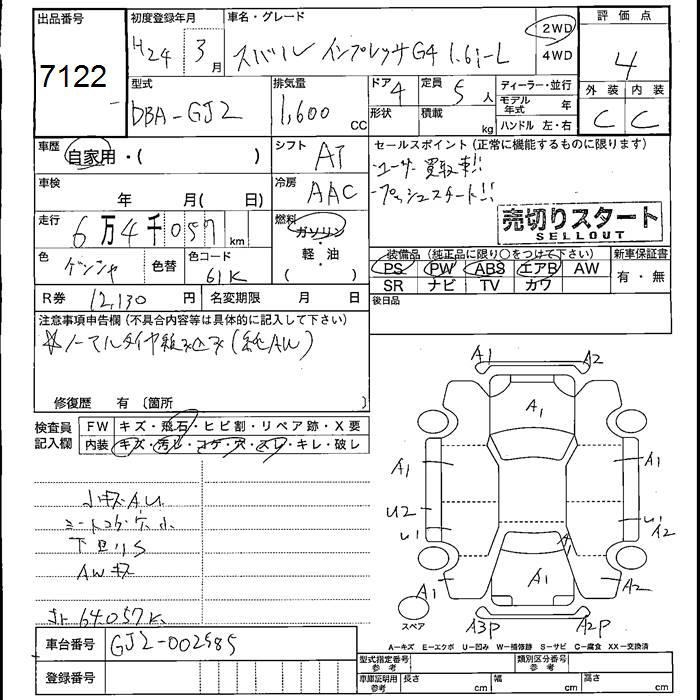 出品番号
7122
初度登録年月
H24 3月
車名・グレード
スバル インプレッサG4 1.6i-L
2WD
4WD
評価点
4
外装 内装
C C
型式
DBA-GJ2
排気量
1,600 cc
ドア 4
形状
定員 5人
積載 kg
ディーラー・並行
モデル年式 年
ハンドル 左・右
車歴
自家用・( )
シフト AT
セールスポイント(正常に機能するものに限ります)
・ユーザー買取車!!
・プッシュスタート!!
車検
年 月( 日)
冷房 AAC
売切りスタート
SELLOUT
走行
6万4千057km
燃料
ガソリン
・
軽・油
( )
色 色替
色コード 61K
装備品(純正品に限り○をつけて下さい)
PS PW ABS エアB AW
SR ナビ TV カワ
新車保証書
有・無
R券 12,130円
名変期限 月 日
後日品
注意事項申告欄(不具合内容等は具体的に記入して下さい)
修復歴 有 〔箇所 〕
検査員記入欄
FW キズ・飛石・ヒビ割・リペア跡・X要
内装 キズ・汚レ・コゲ・穴・スレ・キレ・破レ
小キズAU
下回りS
AWキズ
64,057K
A1 A2
A1
A1 A1
U2 U1
U1 A2
A1
A1 A1 A2
スペア
A3P A2P
A−キズ E−エクボ U−凹み W−補修跡 S−サビ C−腐食 XX−交換済
車台番号 GJ2-002585
登録番号
型式指定番号 参考
類別区分番号 参考
車庫証明用 参考
長さ cm
幅 cm
高さ cm